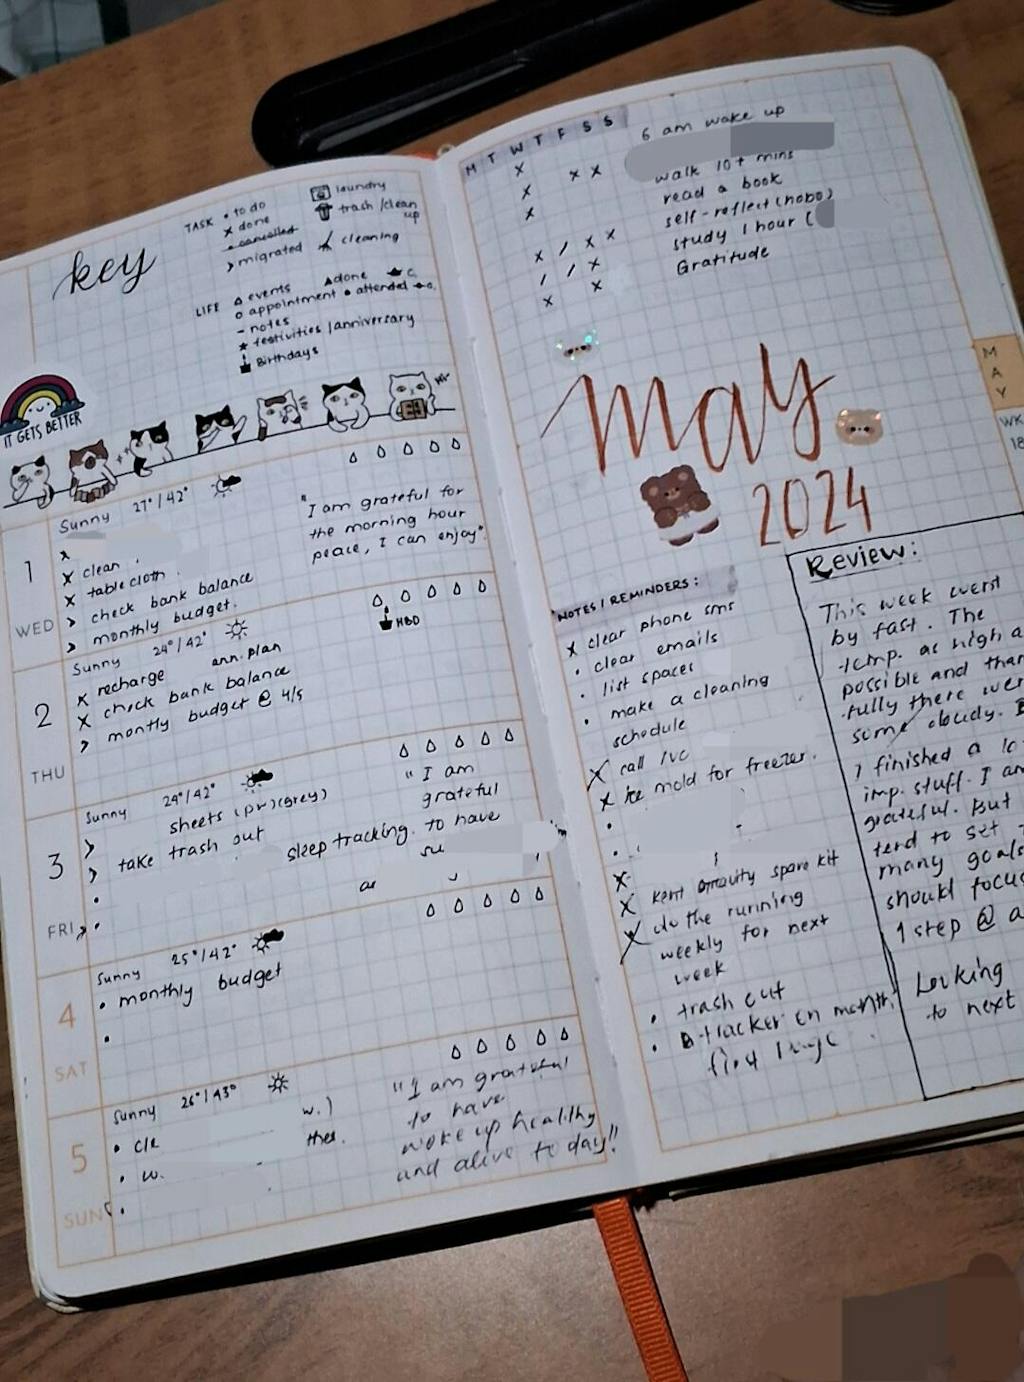 key
TASK • to do
x done
• cancelled
> migrated
laundry
trash / clean up
cleaning
LIFE △ events ▲ done
o appointment • attended
- notes
★ festivities / anniversary
Birthdays
IT GETS BETTER
1
WED
Sunny 27°/42°
x
x clean
x table cloth
> check bank balance
> monthly budget.
"I am grateful for
the morning hour
peace, I can enjoy"
2
THU
Sunny 24°/42°
HBD
x recharge ann. plan
x check bank balance
> montly budget @ 4/5
3
FRI
Sunny 24°/42°
> sheets (pr) (grey)
> take trash out
sleep tracking.
" I am
grateful
to have
su
4
SAT
Sunny 25°/42°
• monthly budget
•
5
SUN
Sunny 26°/43°
• cle w.)
• w. thes.
•
"I am grateful
to have
woke up healthy
and alive today!!
M T W T F S S
6 am wake up
walk 10+ mins
read a book
self-reflect (hobo)
study 1 hour (
Gratitude
may
2024
MAY
WK
18
NOTES / REMINDERS:
x clear phone sms
• clear emails
• list spaces
• make a cleaning
schedule
x call
x ice mold for freezer.
x kent spare kit
x do the running
weekly for next
week
• trash out
• tracker on month
Review:
This week went
by fast. The
temp. as high a
possible and than
fully there wer
some cloudy.
I finished a lo
imp. stuff. I am
grateful. But
tend to set
many goals
should focus
1 step @ a
Looking
to next